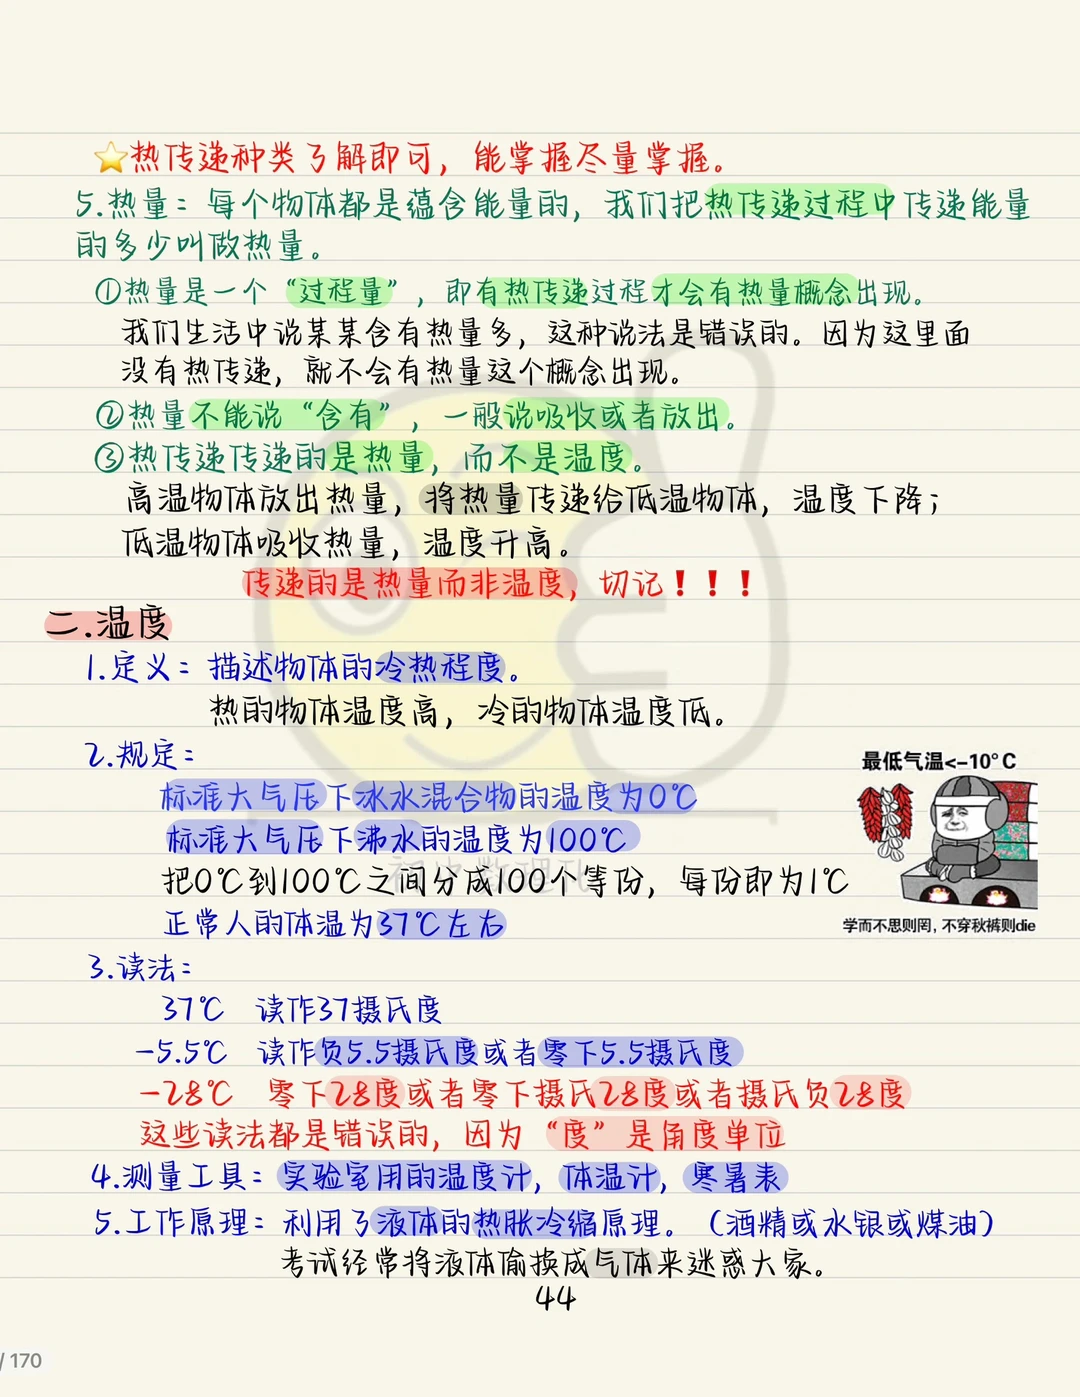 ⭐热传递种类了解即可，能掌握尽量掌握。
5.热量：每个物体都是蕴含能量的，我们把热传递过程中传递能量
的多少叫做热量。
①热量是一个“过程量”，即有热传递过程才会有热量概念出现。
我们生活中说某某含有热量多，这种说法是错误的。因为这里面
没有热传递，就不会有热量这个概念出现。
②热量不能说“含有”，一般说吸收或者放出。
③热传递传递的是热量，而不是温度。
高温物体放出热量，将热量传递给低温物体，温度下降；
低温物体吸收热量，温度升高。
传递的是热量而非温度，切记！！！
二.温度
1.定义：描述物体的冷热程度。
热的物体温度高，冷的物体温度低。
2.规定：
标准大气压下冰水混合物的温度为0℃
标准大气压下沸水的温度为100℃
把0℃到100℃之间分成100个等份，每份即为1℃
正常人的体温为37℃左右
最低气温<-10°C
学而不思则罔，不穿秋裤则die
3.读法：
37℃ 读作37摄氏度
-5.5℃ 读作负5.5摄氏度或者零下5.5摄氏度
-28℃ 零下28度或者零下摄氏28度或者摄氏负28度
这些读法都是错误的，因为“度”是角度单位
4.测量工具：实验室用的温度计，体温计，寒暑表
5.工作原理：利用了液体的热胀冷缩原理。（酒精或水银或煤油）
考试经常将液体偷换成气体来迷惑大家。
44
/ 170